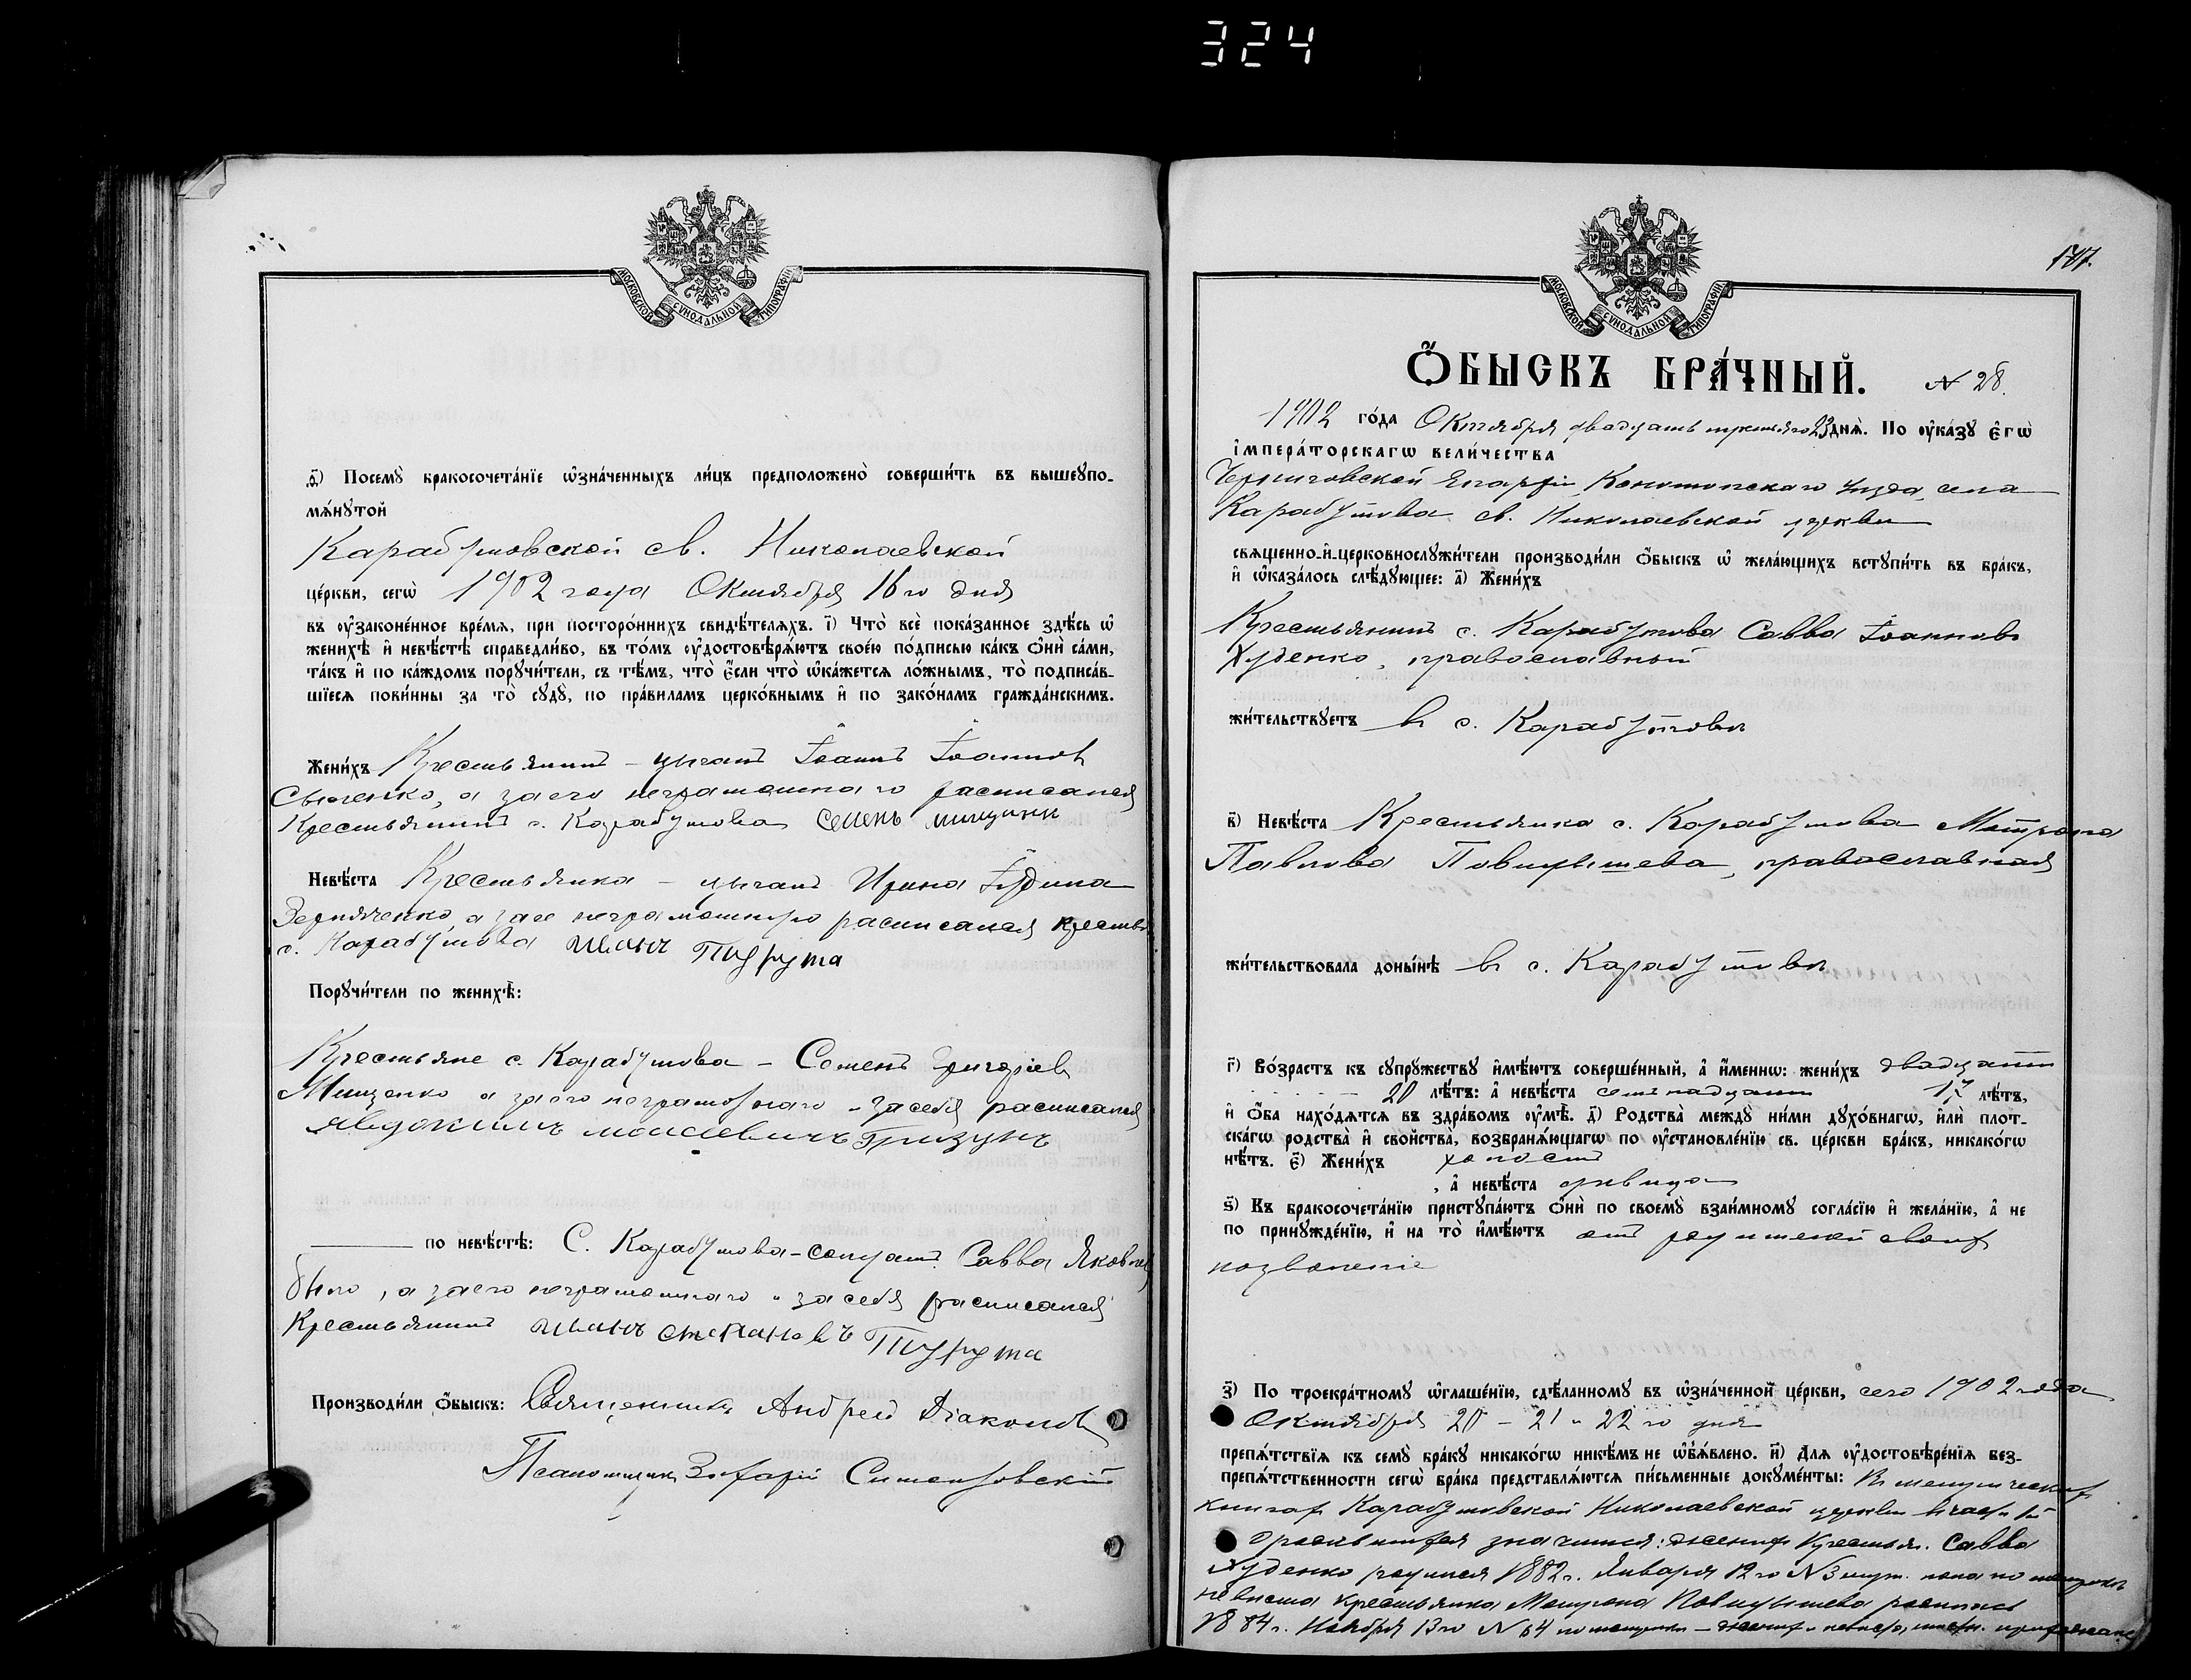 324
МОСКОВСКОЙ СѴНОДАЛЬНОЙ ТИПОГРАФІИ
ѳ҃) Посемꙋ̀ бракосочета́нїе ѡ҆зна́ченныхъ ли́цъ предположено̀ соверши́ть въ вышеꙋпо-
мѧ́нꙋтой
Карабутовской св. Николаевской
це́ркви, сегѡ̀ 1902 года Октября 16го дня
въ ᲂу҆законе́нное вре́мѧ, при посторо́ннихъ свидѣ́телѧхъ. і҃) Что̀ всѐ пока́занное здѣ́сь ѡ҆
женихѣ̀ и҆ невѣ́стѣ справедли́во, въ то́мъ ᲂу҆достовѣрѧ́ютъ свое́ю по́дписью ка́къ ѻ҆нѝ са́ми,
та́къ и҆ по ка́ждомъ порꙋчи́тели, съ тѣ́мъ, что̀ є҆́сли что̀ ѡ҆ка́жетсѧ ло́жнымъ, то̀ подписа́в-
шїесѧ пови́нны за то̀ сꙋдꙋ̀, по пра́виламъ церко́внымъ и҆ по зако́намъ гражда́нскимъ.
Жени́хъ Крестьянинъ - цыганъ Іоаннъ Іоанновъ
а за его неграмотнаго расписался
Крестьянинъ с. Карабутова Семенъ мищенк
Невѣ́ста Крестьянка - цыган Ирина
а за ее неграмотную расписался крестья
с. Карабутова иванъ
Порꙋчи́тели по женихѣ̀:
Крестьяне с. Карабутова - Семенъ Григоріев
Мищенко а за его неграмотнаго и за себя расписался
явдокимъ моисеевичъ Гризунъ
по невѣ́стѣ: С. Карабутова - солдатъ Савва Яковлев
а за его неграмотнаго и за себя расписался
Крестьянинъ иванъ степановъ
Производи́ли ѻ҆́быскъ: Священникъ Андрей Діаконовъ
Псаломщик
МОСКОВСКОЙ СѴНОДАЛЬНОЙ ТИПОГРАФІИ
Ѻ҆́БЫСКЪ БРА́ЧНЫЙ. N 28.
1902 го́да Октября двадцать третьяго 23 днѧ̀. По ᲂу҆ка́зꙋ є҆гѡ̀
і҆мпера́торскагѡ вели́чества
Черниговской Епархіи, Конотопскаго Уезда, села
Карабутова св. Николаевской церкви
свѧще́нно-и҆-церковнослꙋжи́тели производи́ли ѻ҆́быскъ ѡ҆ жела́ющихъ встꙋпи́ть въ бра́къ,
и҆ ѡ҆каза́лось слѣ́дꙋющее: а҃) Жени́хъ
Крестьянинъ с. Карабутова Савва Іоанновъ
Худенко, православный
жи́тельствꙋетъ в с. Карабутовѣ
в҃) Невѣ́ста Крестьянка с. Карабутова Матрона
Павлова православная
жи́тельствовала доны́нѣ в с. Карабутовѣ
г҃) Во́зрастъ къ сꙋпрꙋ́жествꙋ и҆мѣ́ютъ соверше́нный, а҆ и҆́меннѡ: жени́хъ двадцати
20 лѣ́тъ: а҆ невѣ́ста семнадцати 17 лѣ́тъ,
и҆ ѻ҆́ба нахо́дѧтсѧ въ здра́вомъ ᲂу҆мѣ̀. д҃) Родства̀ междꙋ̀ ни́ми дꙋхо́внагѡ, и҆лѝ плот-
ска́гѡ родства̀ и҆ сво́йства, возбранѧ́ющагѡ по ᲂу҆становле́нїю св. це́ркви бра́къ, никако́гѡ
нѣ́тъ. є҃) Жени́хъ холостъ
, а҆ невѣ́ста дѣвица
ѕ҃) Къ бракосочета́нїю пристꙋпа́ютъ ѻ҆нѝ по своемꙋ̀ взаи́мномꙋ согла́сїю и҆ жела́нїю, а҆ не
по принꙋжде́нїю, и҆ на то̀ и҆мѣ́ютъ отъ родителей своихъ
позволеніе
з҃) По троекра́тномꙋ ѡ҆глаше́нїю, сдѣ́ланномꙋ въ ѡ҆зна́ченной це́ркви, сего 1902 года
Октября 20 - 21 и 22го дня
препѧ́тствїѧ къ семꙋ̀ бра́кꙋ никако́гѡ никѣ́мъ не ѡ҆б̾ѧ́влено. и҃) Длѧ ᲂу҆достовѣре́нїѧ без-
препѧ́тственности сегѡ̀ бра́ка представлѧ́ютсѧ пи́сьменные докꙋме́нты: В метрических
книгах Карабутовской Николаевской церкви
значится: женихъ Крестьян. Савва
Худенко родился 1882 г. Января 12го N 3
невеста крестьянка Матрона родилась
1884 г. Ноября 13го N 64